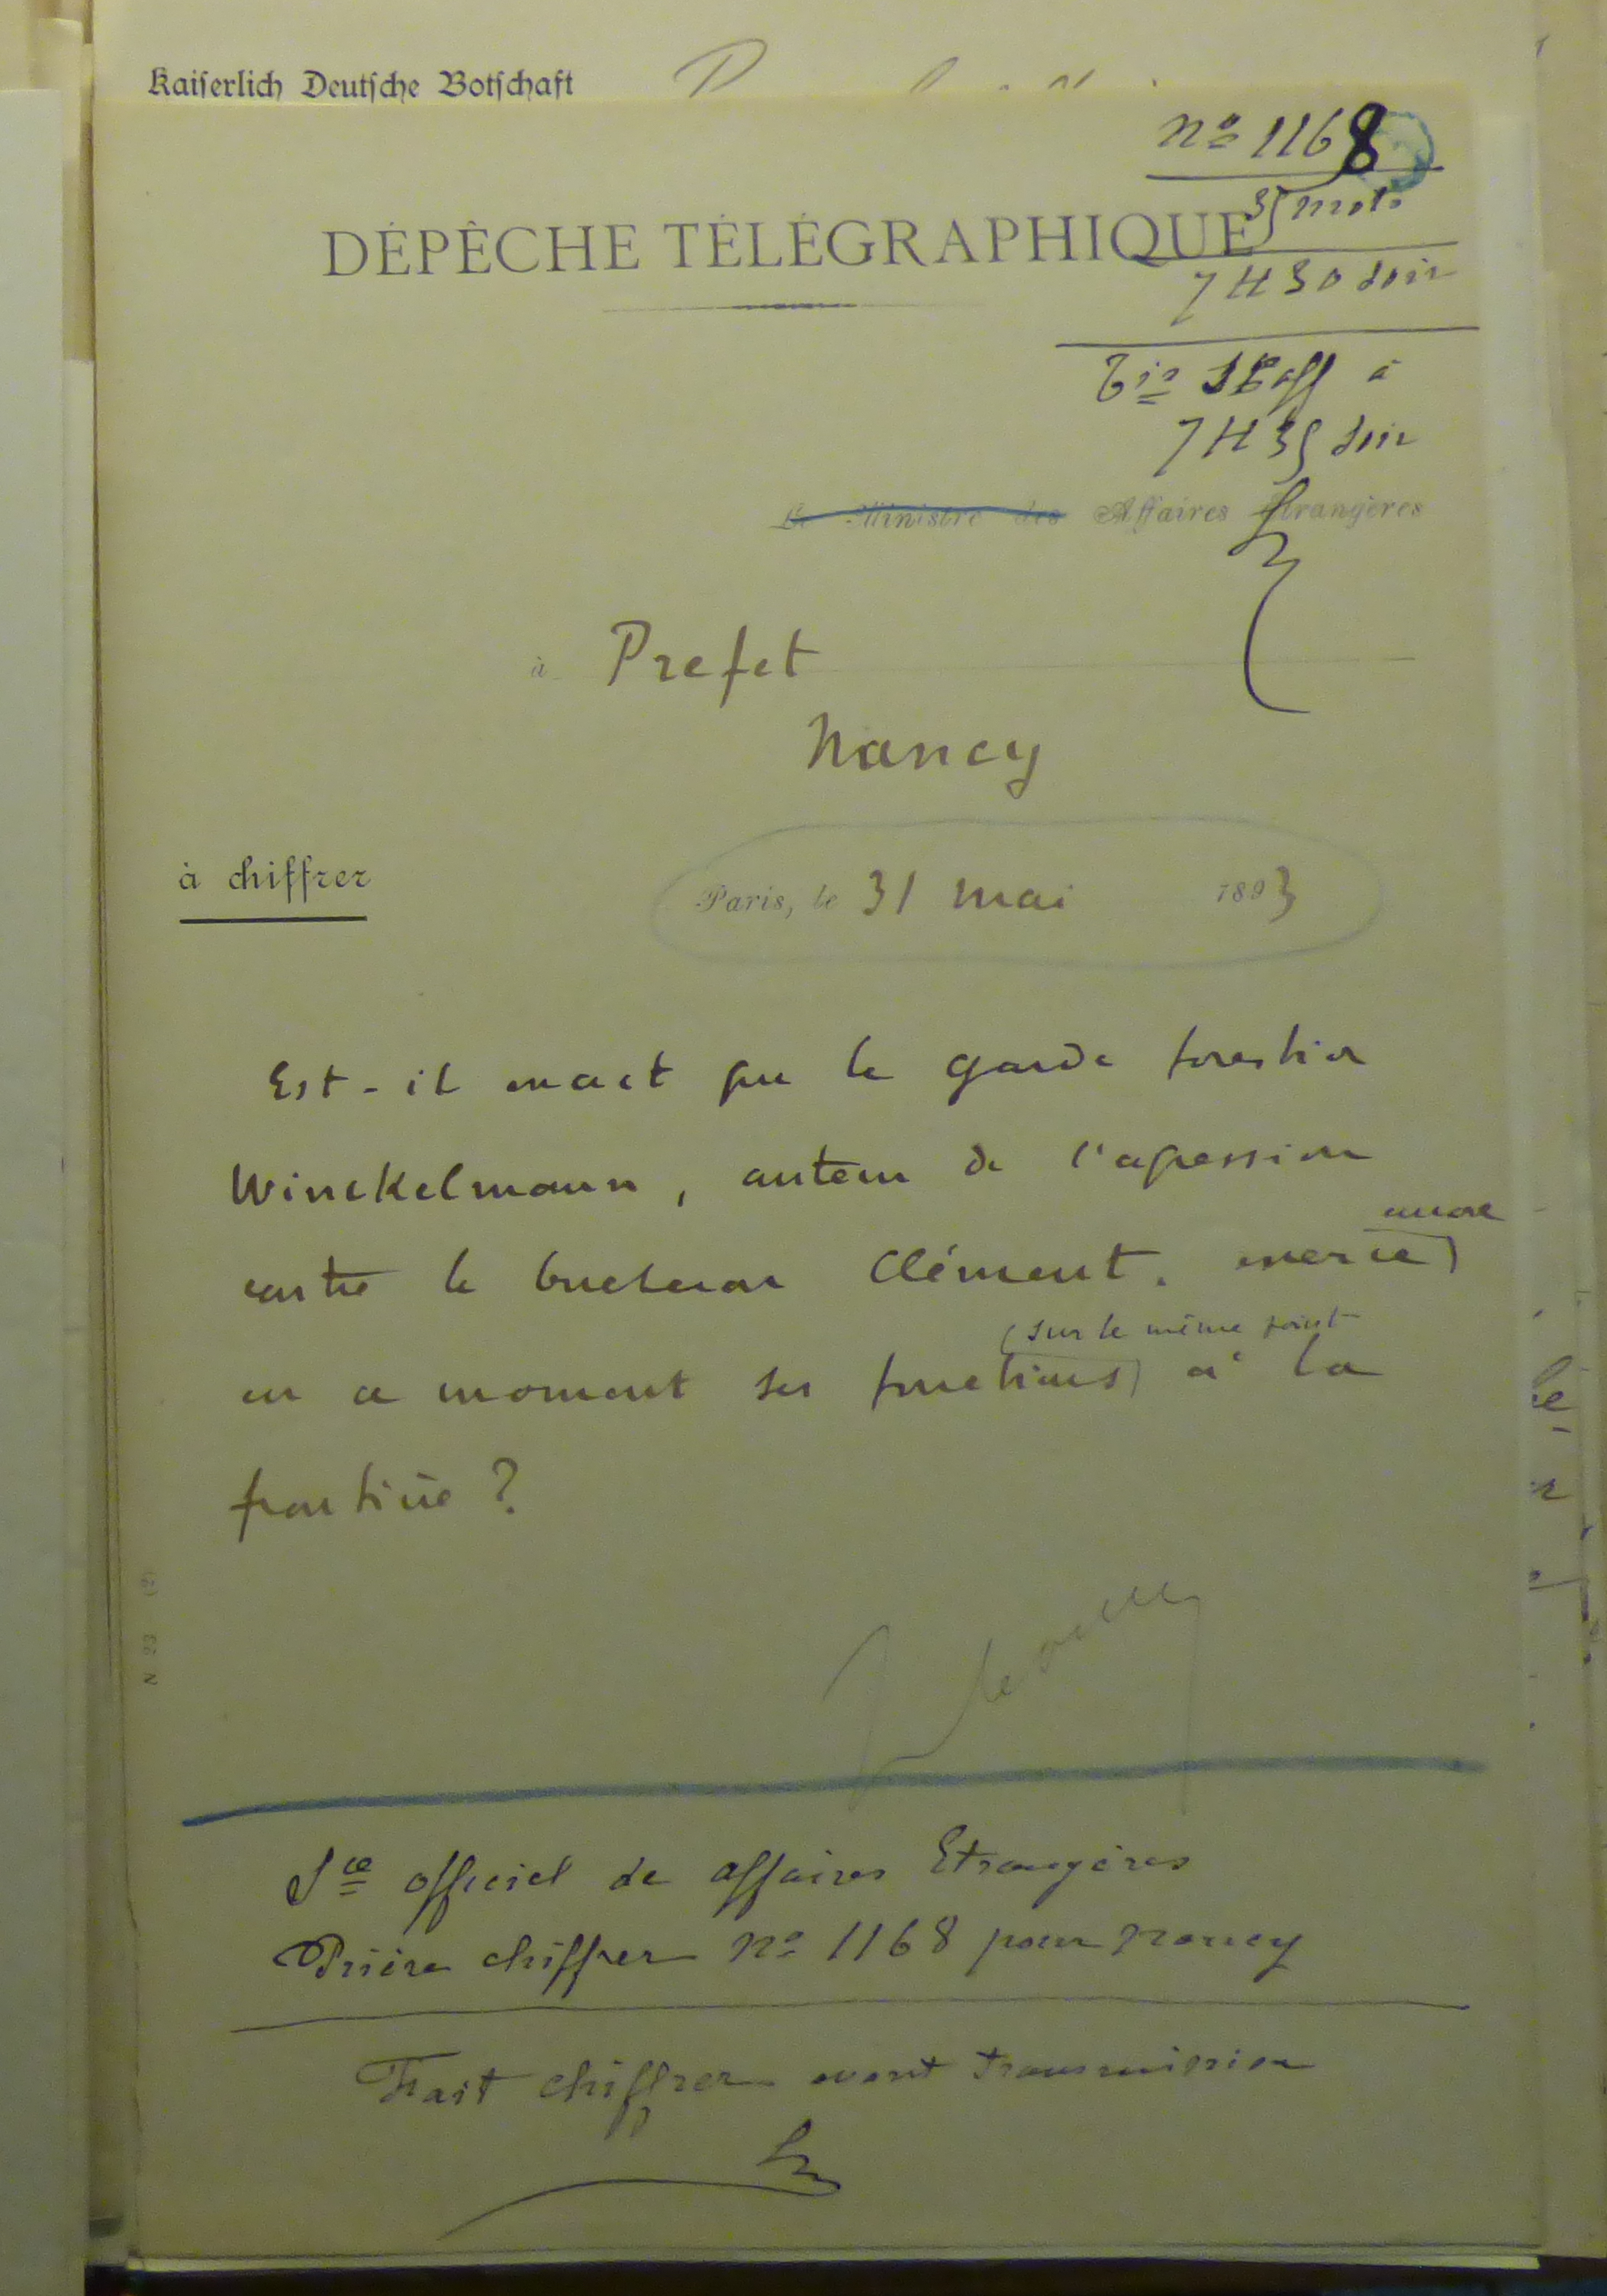 Kaiserlich Deutsche Botschaft
No 1168
35 mots
DÉPÊCHE TÉLÉGRAPHIQUE
7 H 30 soir
à
7 H 35 soir
Le Ministre des Affaires Étrangères
à Prefet
Nancy
à chiffrer
Paris, le 31 mai 1893
Est-il exact que le garde forestier
Winckelmann, auteur de l'agression
encore
contre le bucheron Clément, exerce
(sur le même point
en ce moment ses fonctions) à la
frontière ?
Sce officiel de affaires Etrangères
Prière chiffrer No 1168 pour Nancy
Fait chiffrer avant transmission